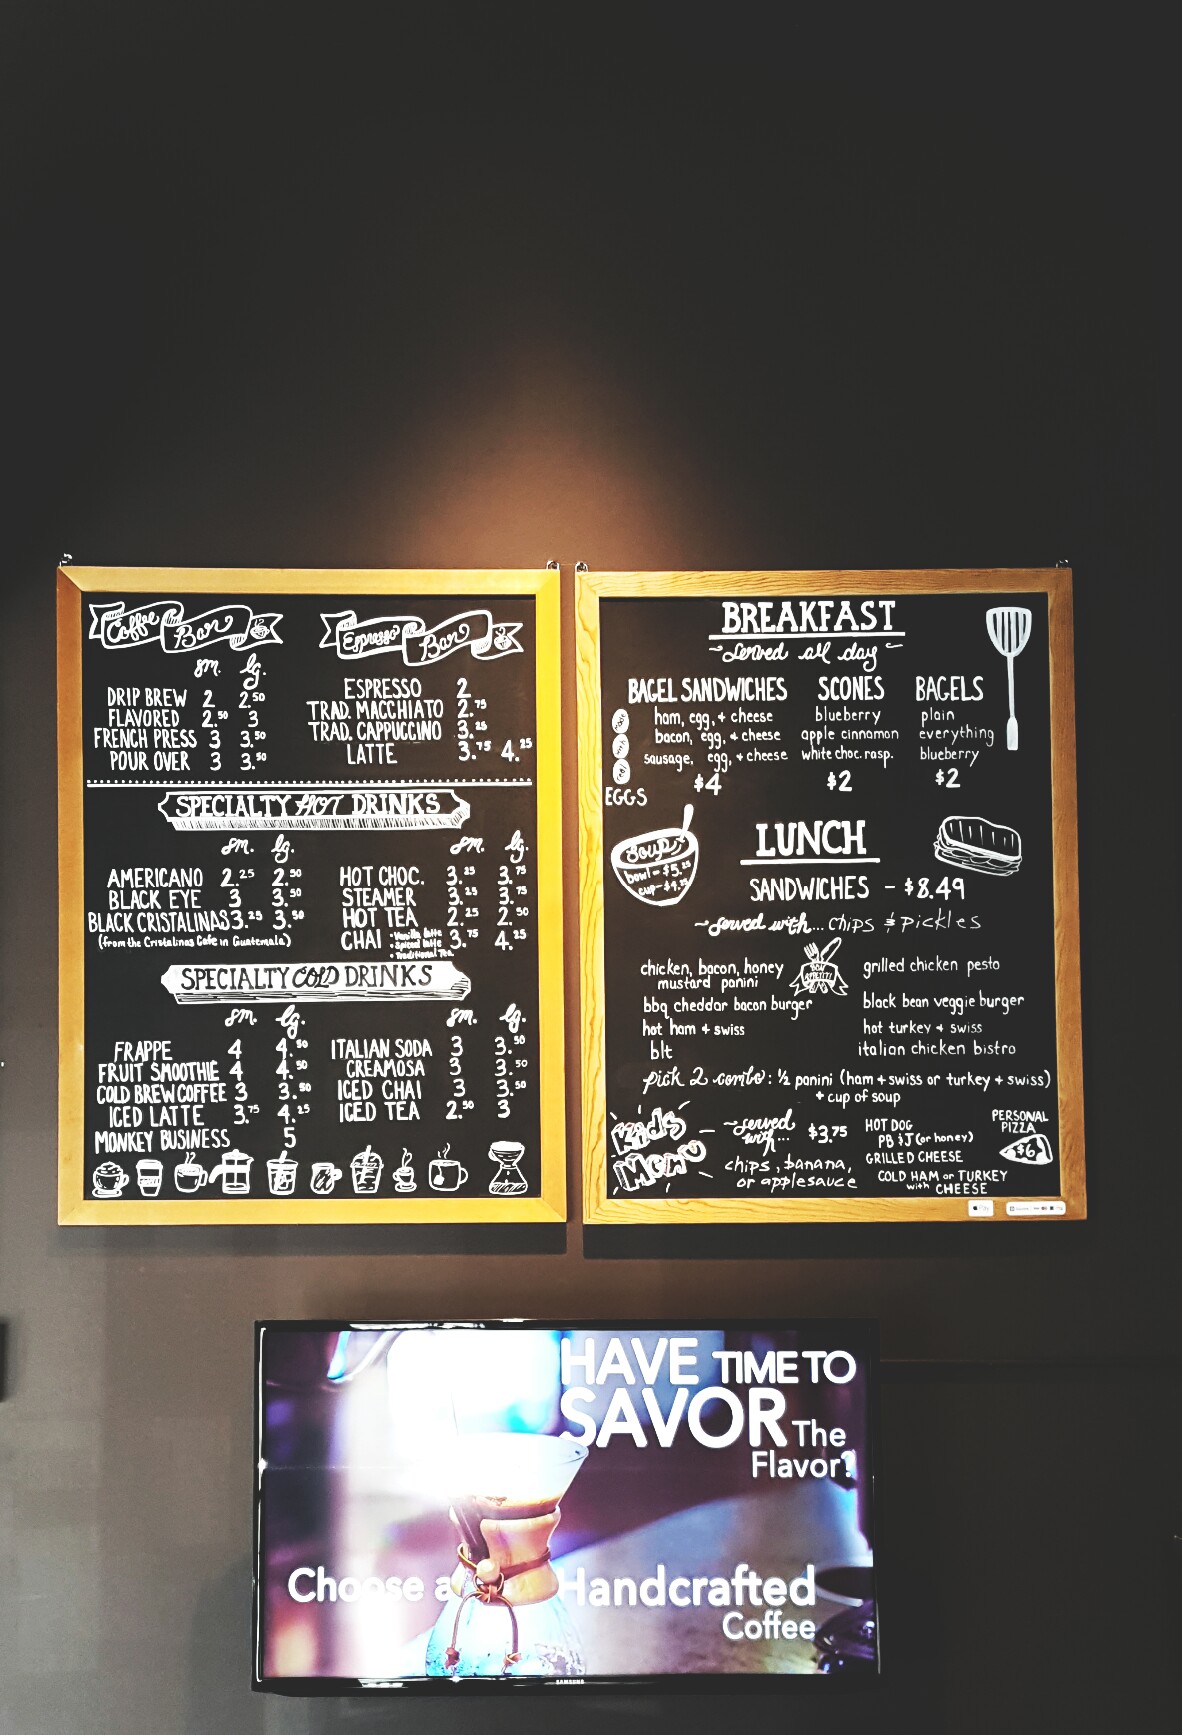 Coffee Bar
sm. lg.
DRIP BREW 2 2.50
FLAVORED 2.50 3
FRENCH PRESS 3 3.50
POUR OVER 3 3.50
Espresso Bar
ESPRESSO 2
TRAD. MACCHIATO 2.75
TRAD. CAPPUCCINO 3.25
LATTE 3.75 4.25
SPECIALTY HOT DRINKS
sm. lg.
AMERICANO 2.25 2.50
BLACK EYE 3 3.50
BLACK CRISTALINAS 3.25 3.50
(from the Cristalinas Cafe in Guatemala)
sm. lg.
HOT CHOC. 3.25 3.75
STEAMER 3.25 3.75
HOT TEA 2.25 2.50
CHAI • Vanilla latte 3.75 4.25
• Spiced latte
• Traditional Tea
SPECIALTY COLD DRINKS
sm. lg.
FRAPPE 4 4.50
FRUIT SMOOTHIE 4 4.50
COLD BREW COFFEE 3 3.50
ICED LATTE 3.75 4.25
MONKEY BUSINESS 5
sm. lg.
ITALIAN SODA 3 3.50
CREAMOSA 3 3.50
ICED CHAI 3 3.50
ICED TEA 2.50 3
BREAKFAST
~ Served all day ~
BAGEL SANDWICHES
ham, egg, + cheese
bacon, egg, + cheese
sausage, egg, + cheese
$4
EGGS
SCONES
blueberry
apple cinnamon
white choc. rasp.
$2
BAGELS
plain
everything
blueberry
$2
Soup
bowl - $5.25
cup - $4.25
LUNCH
SANDWICHES - $8.49
~ served with... CHIPS & PICKLES
chicken, bacon, honey
mustard panini
bbq cheddar bacon burger
hot ham + swiss
blt
BON APPETIT!
grilled chicken pesto
black bean veggie burger
hot turkey + swiss
italian chicken bistro
pick 2 combo: ½ panini (ham + swiss or turkey + swiss)
+ cup of soup
Kids
Menu
~ served
with... $3.75
chips, banana,
or applesauce
HOT DOG
PB & J (or honey)
GRILLED CHEESE
COLD HAM or TURKEY
with CHEESE
PERSONAL
PIZZA
$6
Pay
HAVE TIME TO
SAVOR The
Flavor?
Choose a Handcrafted
Coffee
SAMSUNG